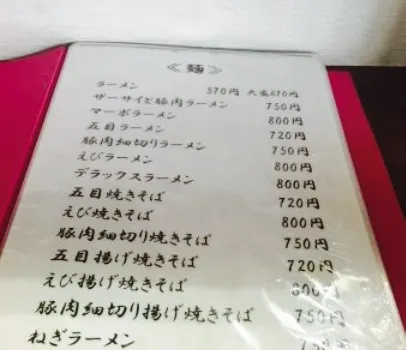 ≪ 麺 ≫
ラーメン 570円 大盛670円
ザーサイと豚肉ラーメン 750円
マーボラーメン 800円
五目ラーメン 720円
豚肉細切りラーメン 750円
えびラーメン 800円
デラックスラーメン 800円
五目焼きそば 720円
えび焼きそば 800円
豚肉細切り焼きそば 750円
五目揚げ焼きそば 720円
えび揚げ焼きそば 800円
豚肉細切り揚げ焼きそば 750円
ねぎラーメン 750円